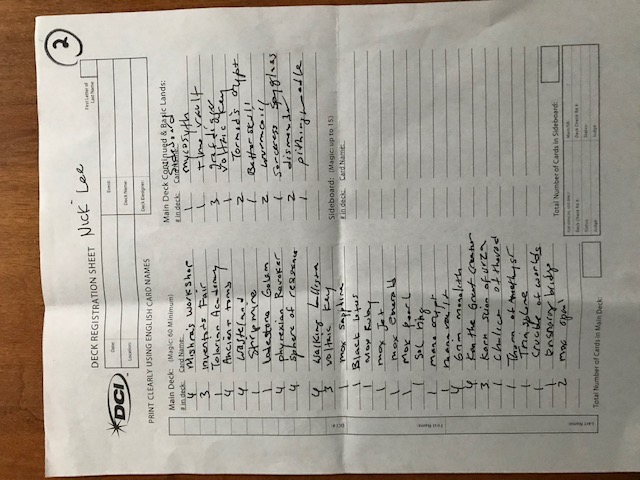 2
DECK REGISTRATION SHEET
Nick Lee
First Letter of
Last Name
DCI
Date:
Event:
Location:
Deck Name:
Deck Designer:
PRINT CLEARLY USING ENGLISH CARD NAMES
Main Deck: (Magic: 60 Minimum)
# in deck: Card Name:
4 Mishra's Workshop
3 Inventors Fair
1 Tolarian Academy
4 Ancient tomb
4 wasteland
1 Stripmine
1 Lodestone Golem
4 phyrexian Revoker
4 sphere of resistance
4 Walking ballista
3 voltaic Key
1 mox sapphire
1 Black Lotus
1 Mox Ruby
1 mox Jet
1 mox Emerald
1 Mox pearl
1 Sol ring
1 mana crypt
1 mana vault
4 Grim monolith
4 Karn the Great Creator
3 Karn scion of urza
1 Chalice of the void
1 Thorn of Amethyst
1 Trinisphere
1 Crucible of worlds
1 Ensnaring bridge
2 mox opal
Total Number of Cards in Main Deck:
Main Deck Continued & Basic Lands:
# in deck: Card Name:
Sideboard
1 mycosyth
1 time vault
3 grafdigger
1 voltaic Key
2 Tormod's crypt
1 Batterskull
2 wurmcoil
1 Sorceress Spyglass
2 dismember
1 pithing needle
Sideboard: (Magic: up to 15)
# in deck: Card Name:
Total Number of Cards in Sideboard:
FOR OFFICIAL USE ONLY
Main/SB:
Deck Check Rd #:
Deck Check Rd #:
Status:
Status:
Judge:
Judge:
DCI #:
First Name:
Last Name: